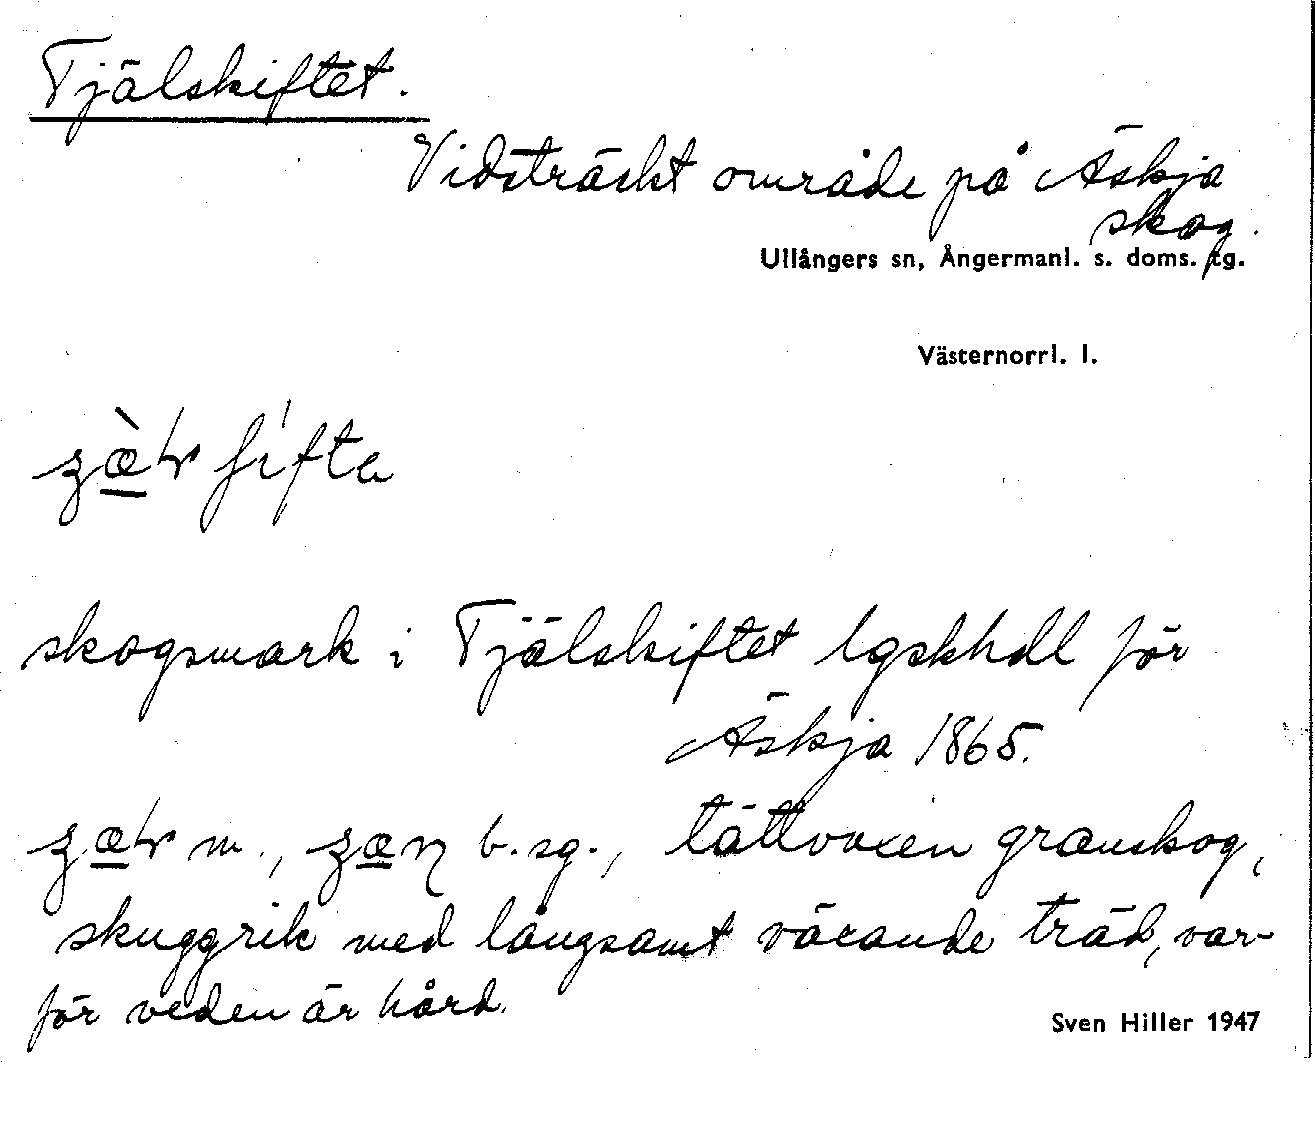 Tjälskiftet.
Vidsträckt område på Äskja
skog.
Ullångers sn, Ångermanl. s. doms. tg.
Västernorrl. l.
skogsmark i Tjälskiftet lgskhdl för
Äskja 1865.
m., b. sg., tättvaxen granskog,
skuggrik med långsamt växande träd, var-
för veden är hård.
Sven Hiller 1947